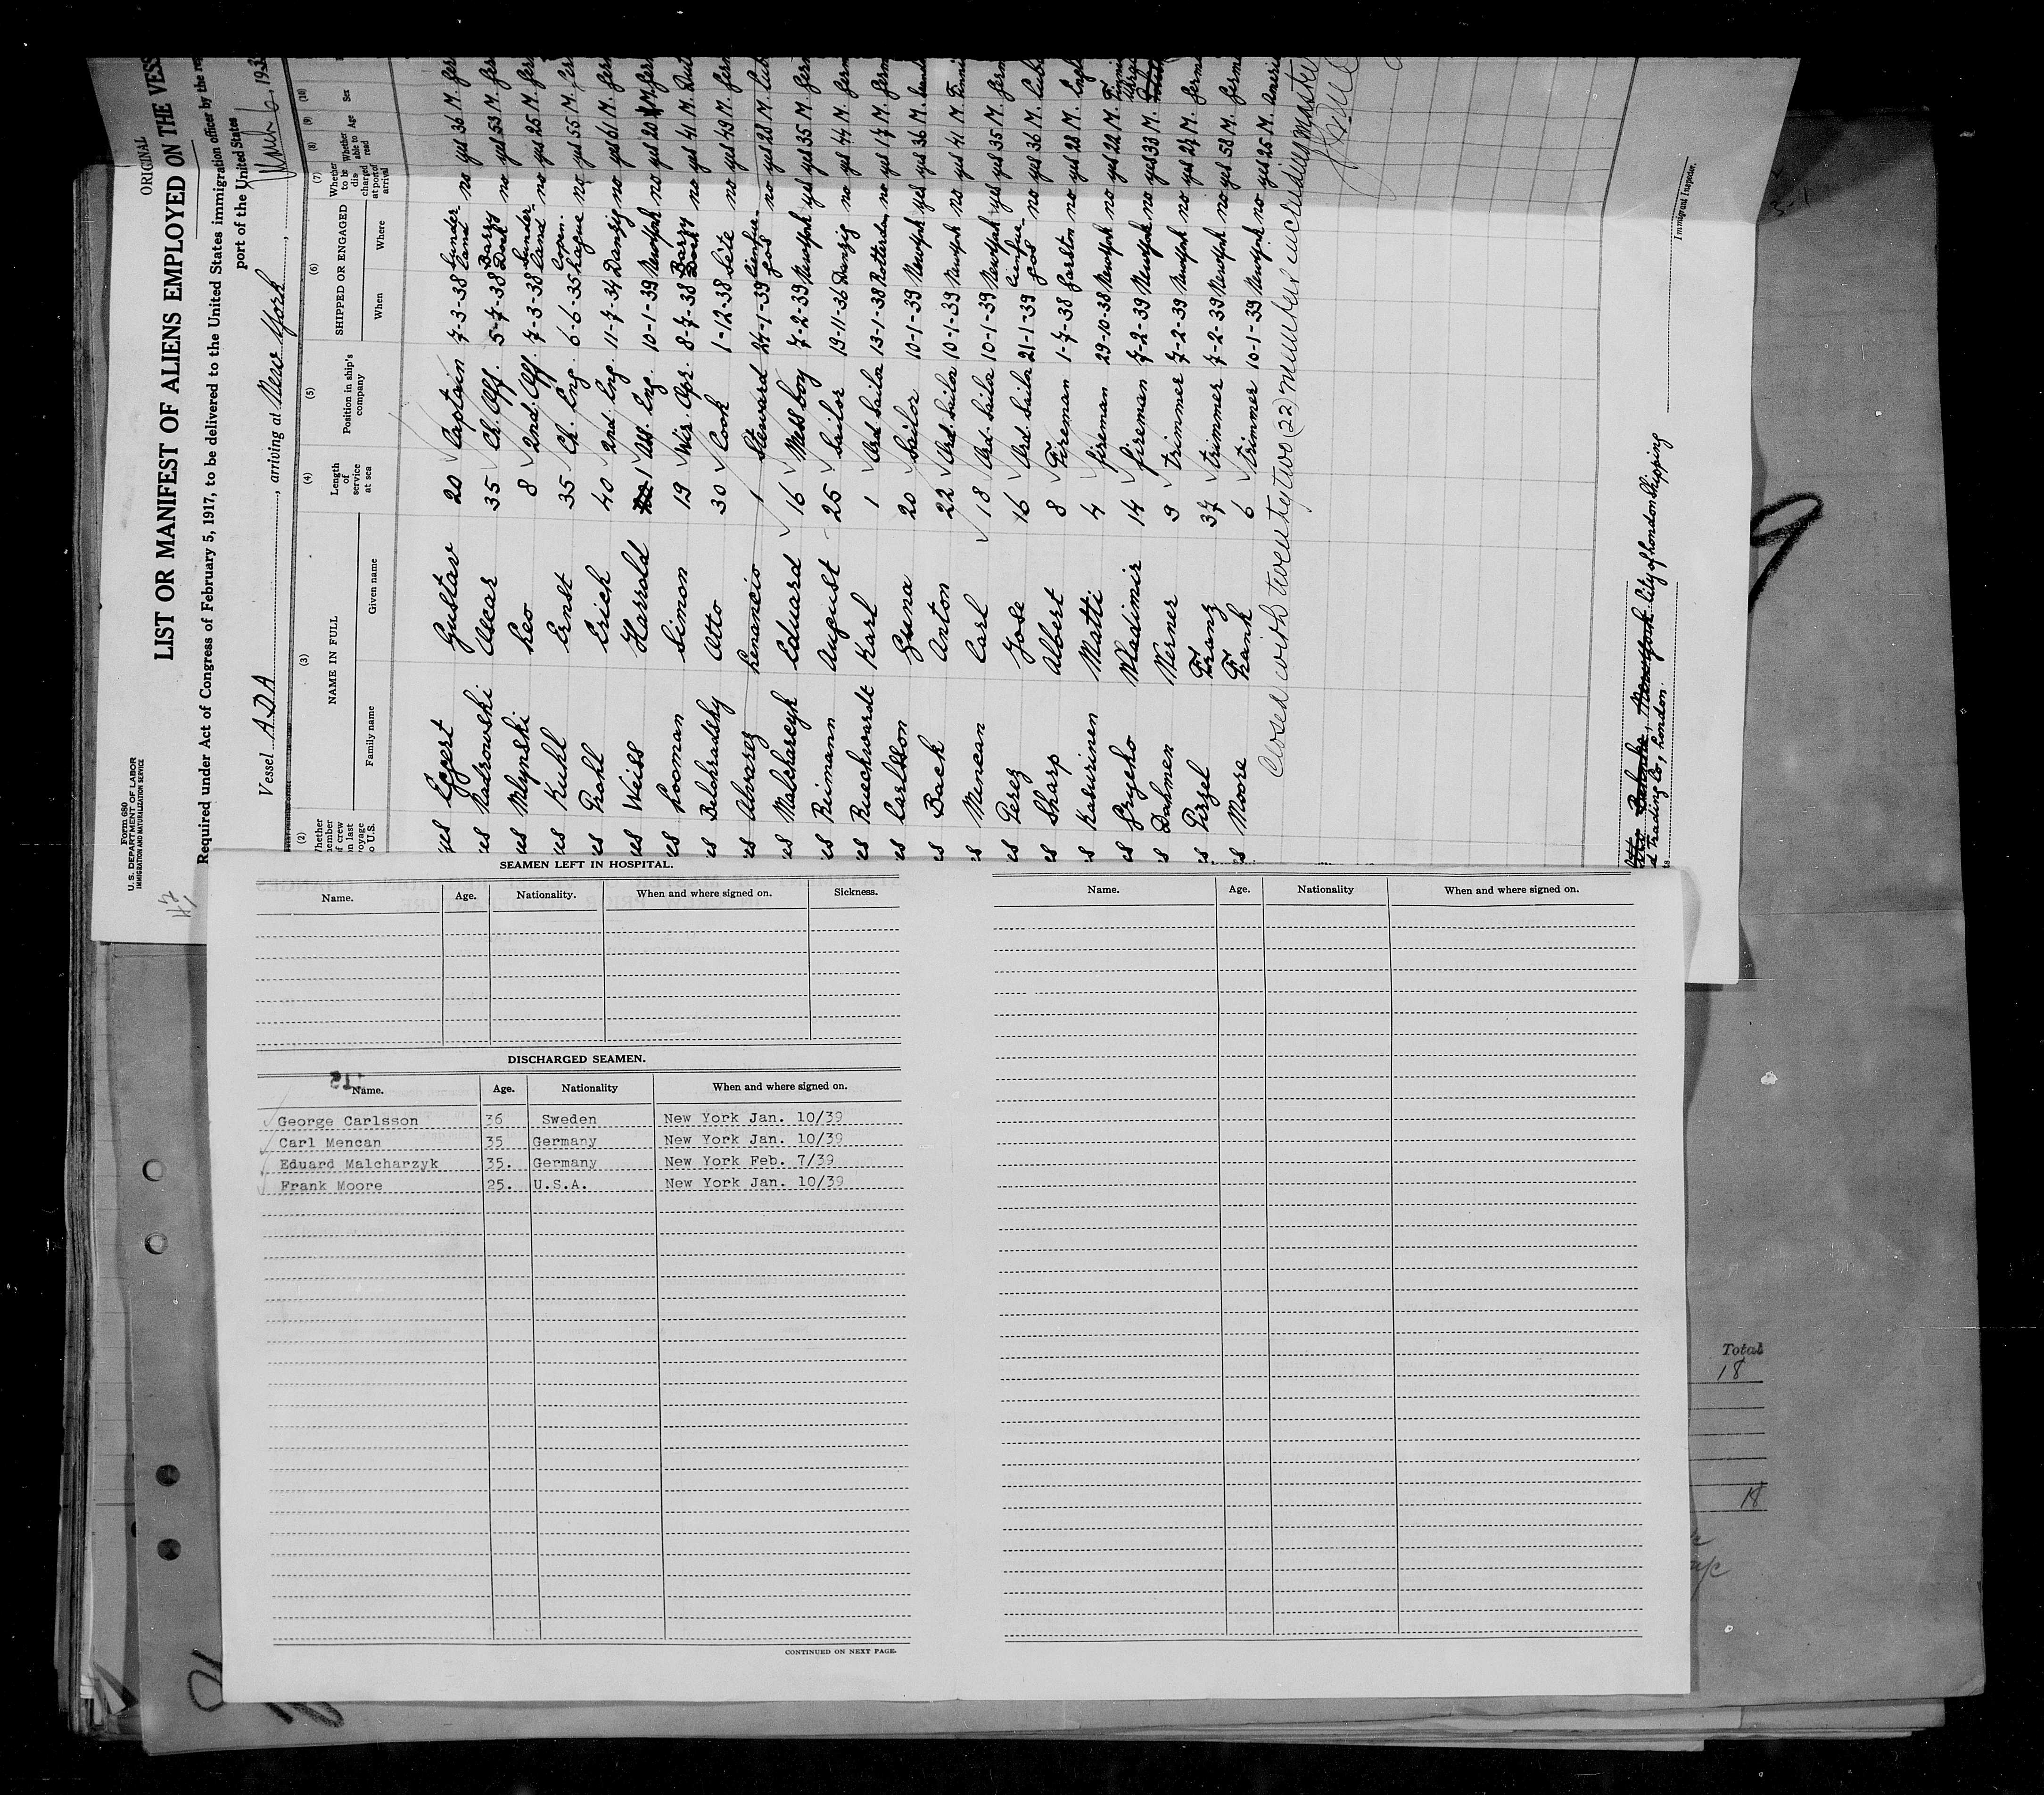 Form 680
U. S. DEPARTMENT OF LABOR
IMMIGRATION AND NATURALIZATION SERVICE
ORIGINAL
LIST OR MANIFEST OF ALIENS EMPLOYED ON THE VESS
Required under Act of Congress of February 5, 1917, to be delivered to the United States immigration officer by the re
port of the United States
Vessel ADA, arriving at New York, 193
(2) (3) (4) (5) (6) (7) (8) (9) (10)
NAME IN FULL
Family name Given name
Length of service at sea
Position in ship's company
SHIPPED OR ENGAGED
When Where
Whether to be discharged at port of arrival
Whether able to read
Age
Sex
Eggert Gustav 20 Captain 7-3-38 Sunderland no yes 36 M. Ger
Nadrowski Oscar 35 Ch. Off. 5-7-38 Barry Dock no yes 53 M. Ger
Mlynski Leo 8 2nd. Off. 7-3-38 Sunderland no yes 25 M. Ger
Kuhl Ernst 35 Ch. Eng. 6-6-35 Copenhague no yes 55 M. Ger
Prohl Erich 40 2nd. Eng. 11-7-34 Danzig no yes 61 M. Ger
Weiss Harrold 1 Ass. Eng. 10-1-39 New York no yes 20 M. Ger
Looman Simon 19 Wir. Opr. 8-7-38 Barry Dock no yes 41 M. Dut
Belohradsky Otto 30 Cook 1-12-38 Sète no yes 49 M. Ger
Alvarez Venancio 1 Steward 24-1-39 Cienfuegos no yes 28 M. Cub
Malchareyk Eduard 16 Mess boy 7-2-39 New York yes yes 35 M. Germ
Reimann August 25 Sailor 19-11-36 Danzig no yes 44 M. Germ
Rueckwardt Karl 1 Ord. Sailor 13-1-38 Rotterdam no yes 17 M. Germ
Carlsson Guna 20 Sailor 10-1-39 New York yes yes 36 M.
Back Anton 22 Ord. Sailor 10-1-39 New York no yes 41 M. Finni
Mencan Carl 18 Ord. Sailor 10-1-39 New York yes yes 35 M. Germ
Perez Jose 16 Ord. Sailor 21-1-39 Cienfuegos no yes 36 M. Cuba
Sharp Albert 8 Fireman 1-7-38 Garston no yes 28 M. Engl
Karurinen Matti 4 fireman 29-10-38 New York no yes 22 M. Finni
Grycko Wladimir 14 fireman 7-2-39 New York no yes 33 M.
Dahmen Werner 9 trimmer 7-2-39 New York no yes 27 M. Germ
Pirzel Franz 37 trimmer 7-2-39 New York no yes 52 M. Germ
Moore Frank 6 trimmer 10-1-39 New York no yes 25 M. Ameri
Closed with twenty two (22) members including master
City of London Shipping
d Trading Co, London.
Immigrant Inspector.
SEAMEN LEFT IN HOSPITAL.
Name. Age. Nationality. When and where signed on. Sickness.
DISCHARGED SEAMEN.
Name. Age. Nationality When and where signed on.
George Carlsson 36 Sweden New York Jan. 10/39
Carl Mencan 35 Germany New York Jan. 10/39
Eduard Malcharzyk 35. Germany New York Feb. 7/39
Frank Moore 25. U.S.A. New York Jan. 10/39
CONTINUED ON NEXT PAGE.
Name. Age. Nationality When and where signed on.
Total
18
18